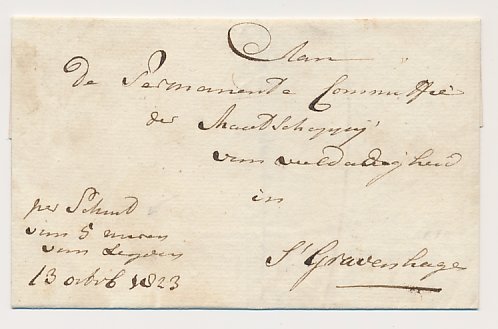 Aan
De Permanente Committie
der Maatschappij
van weldadigheid
in
S'Gravenhage
per Schuit
van 5 uuren
van Leyden
13 octob 1823